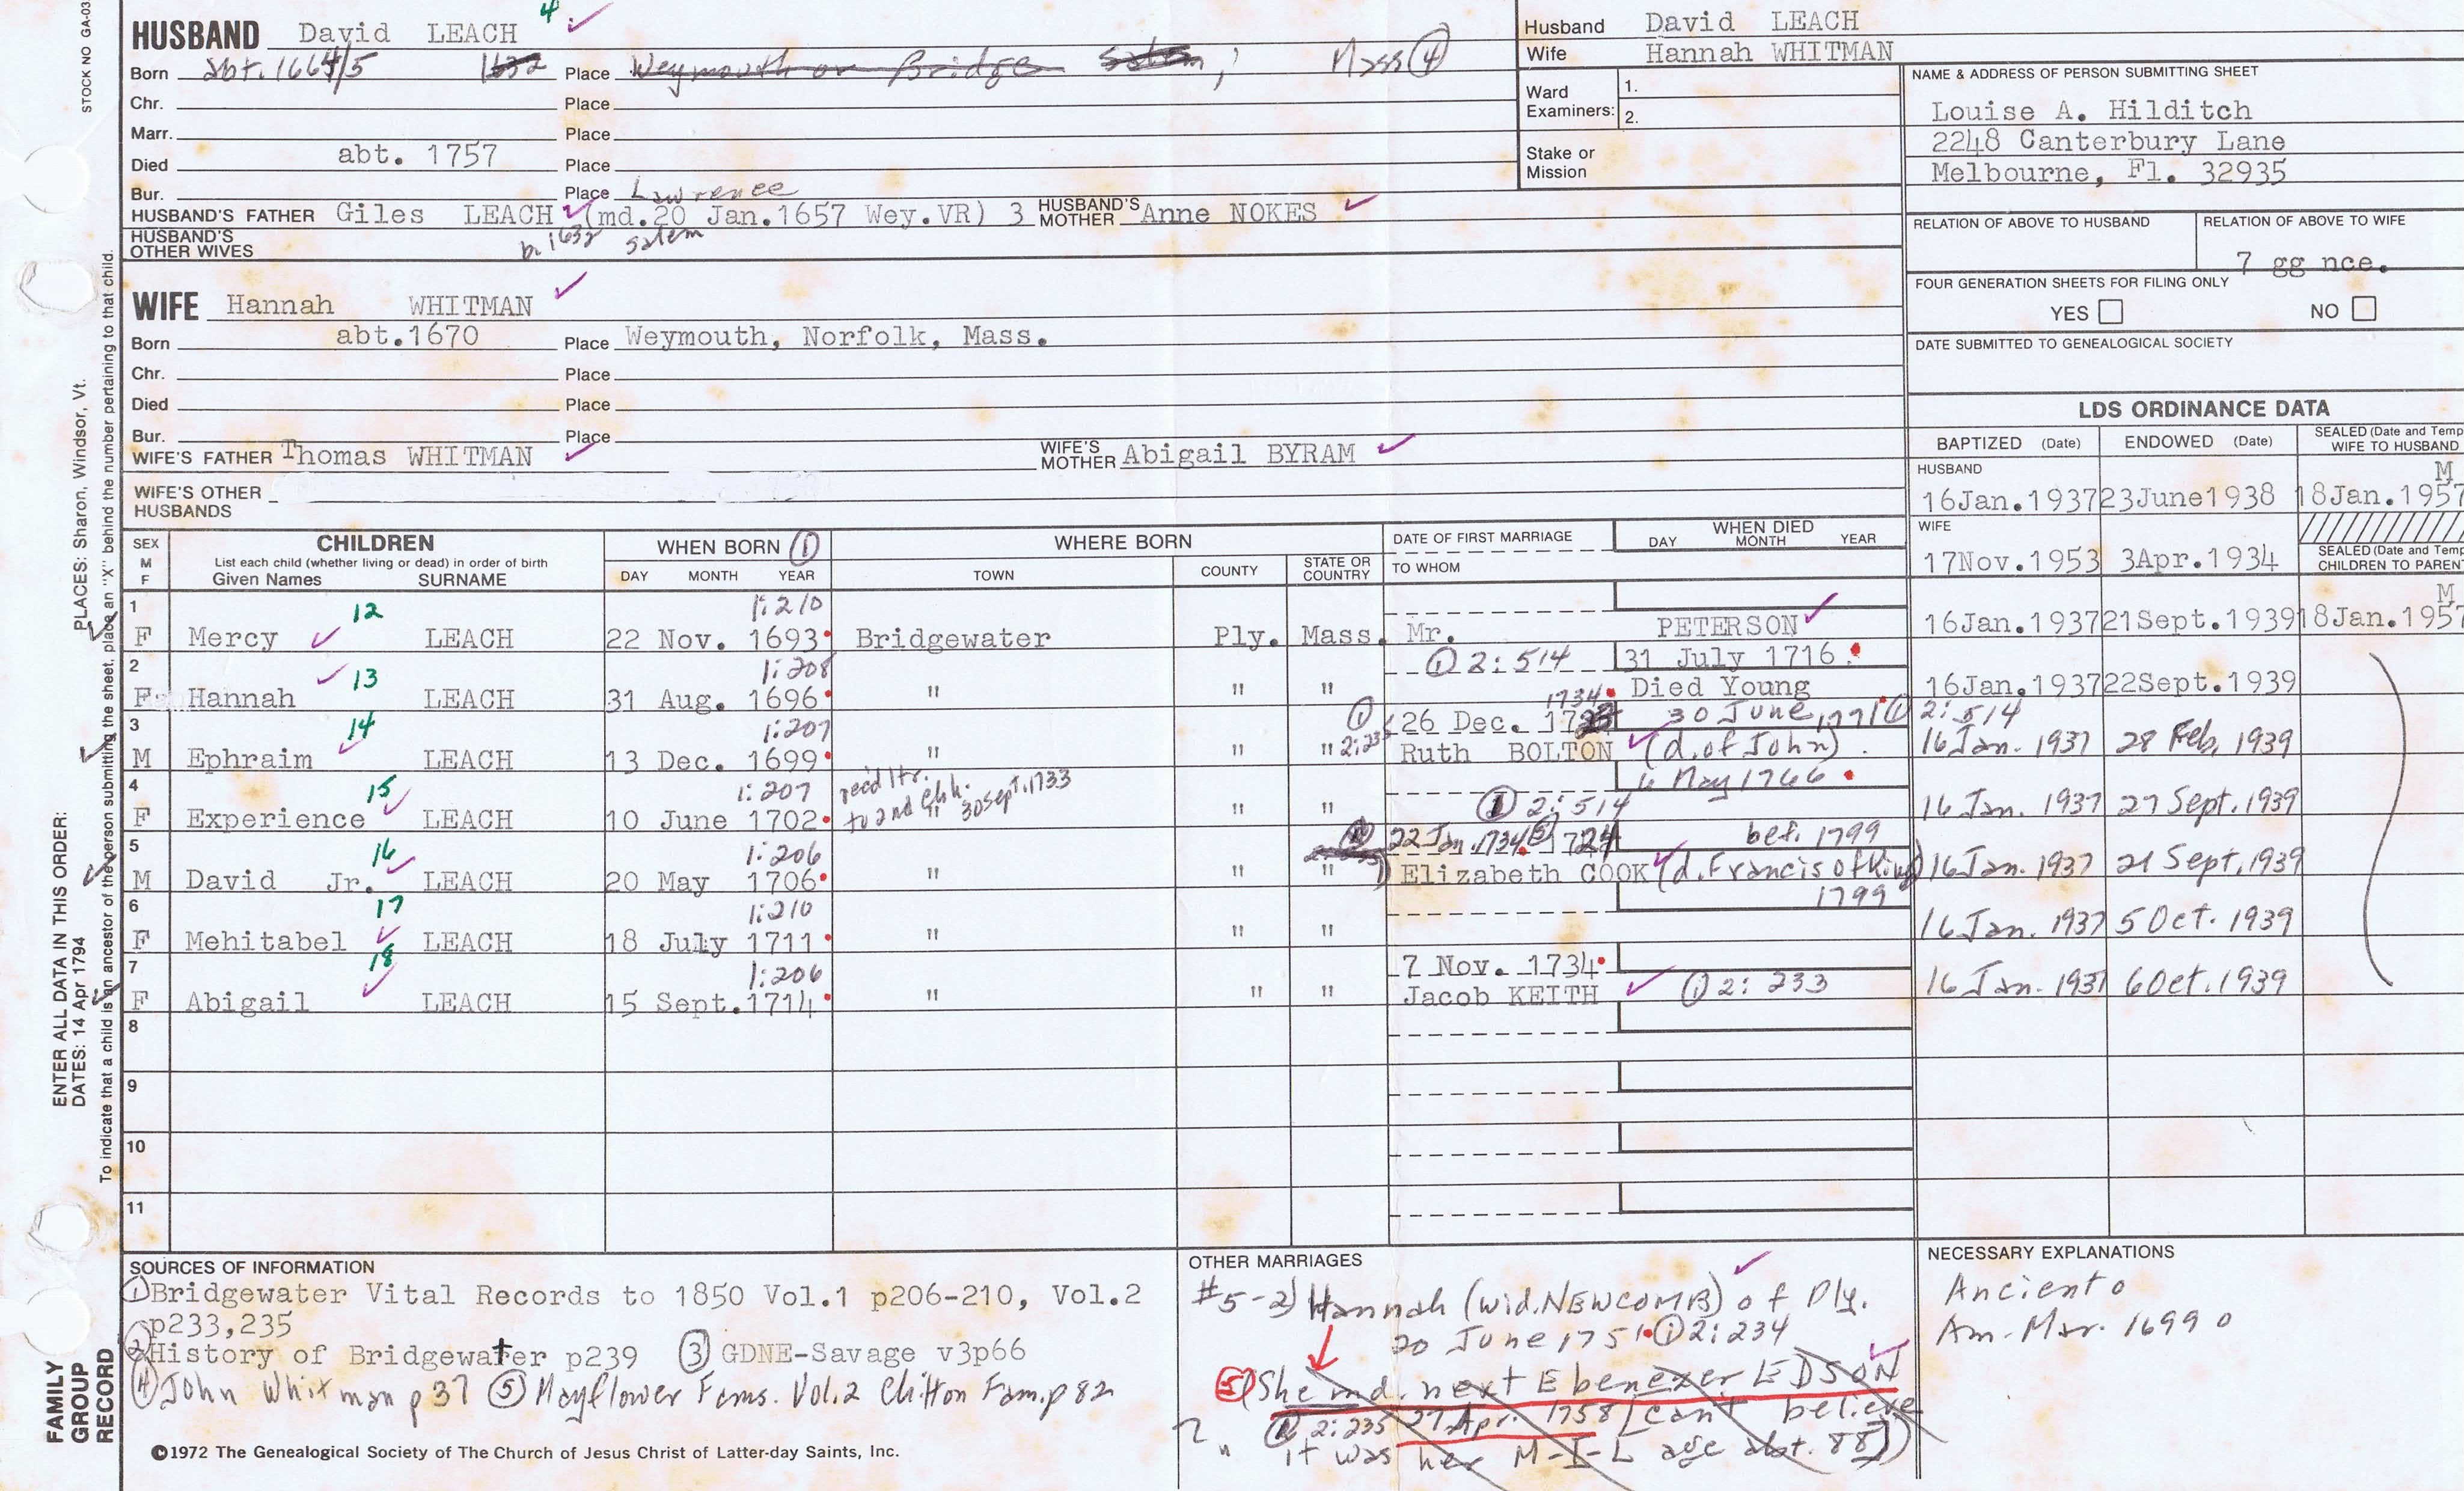 STOCK NO GA-03
HUSBAND David LEACH 4
Born abt. 1664/5 1632 Place Weymouth or Bridge Salem, Mass (4)
Chr. Place
Marr. Place
Died abt. 1757 Place
Bur. Place Lawrence
HUSBAND'S FATHER Giles LEACH (md.20 Jan.1657 Wey.VR) 3 HUSBAND'S MOTHER Anne NOKES
b. 1632 Salem
HUSBAND'S OTHER WIVES
WIFE Hannah WHITMAN
Born abt.1670 Place Weymouth, Norfolk, Mass.
Chr. Place
Died Place
Bur. Place
WIFE'S FATHER Thomas WHITMAN WIFE'S MOTHER Abigail BYRAM
WIFE'S OTHER HUSBANDS
Husband David LEACH
Wife Hannah WHITMAN
Ward Examiners: 1.
2.
Stake or Mission
NAME & ADDRESS OF PERSON SUBMITTING SHEET
Louise A. Hilditch
2248 Canterbury Lane
Melbourne, Fl. 32935
RELATION OF ABOVE TO HUSBAND RELATION OF ABOVE TO WIFE
7 gg nce.
FOUR GENERATION SHEETS FOR FILING ONLY
YES NO
DATE SUBMITTED TO GENEALOGICAL SOCIETY
LDS ORDINANCE DATA
BAPTIZED (Date) ENDOWED (Date) SEALED (Date and Temp
WIFE TO HUSBAND
HUSBAND M
16Jan.1937 23June1938 18Jan.1957
WIFE
17Nov.1953 3Apr.1934
SEALED (Date and Temp
CHILDREN TO PARENT
SEX M F CHILDREN WHEN BORN (1) WHERE BORN DATE OF FIRST MARRIAGE WHEN DIED
List each child (whether living or dead) in order of birth
Given Names SURNAME DAY MONTH YEAR TOWN COUNTY STATE OR COUNTRY TO WHOM DAY MONTH YEAR
1 12 1:210 M
F Mercy LEACH 22 Nov. 1693 Bridgewater Ply. Mass. Mr. PETERSON 16Jan.1937 21Sept.1939 18Jan.1957
2 13 1:208 (1) 2:514 31 July 1716
F Hannah LEACH 31 Aug. 1696 " " " Died Young 16Jan.1937 22Sept.1939
3 14 1:207 (1) 26 Dec. 1734 30 June 1771 (1) 2:514
M Ephraim LEACH 13 Dec. 1699 " " " 2:23 Ruth BOLTON (d. of John) 16 Jan. 1937 28 Feb, 1939
4 15 1:207 recd ltr. to 2nd Chh. 30 Sept, 1733 6 May 1766
F Experience LEACH 10 June 1702 " " " (1) 2:514 16 Jan. 1937 27 Sept. 1939
5 16 1:206 22 Jan. 1734 (5) 1724 bef. 1799
M David Jr. LEACH 20 May 1706 " " " Elizabeth COOK (d. Francis of King) 16 Jan. 1937 21 Sept, 1939
6 17 1:210 1799
F Mehitabel LEACH 18 July 1711 " " " 16 Jan. 1937 5 Oct. 1939
7 18 1:206 7 Nov. 1734
F Abigail LEACH 15 Sept.1714 " " " Jacob KEITH (1) 2:233 16 Jan. 1937 6 Oct. 1939
8
9
10
11
SOURCES OF INFORMATION
(1) Bridgewater Vital Records to 1850 Vol.1 p206-210, Vol.2
p233,235
(2) History of Bridgewater p239 (3) GDNE-Savage v3p66
(4) John Whitman p 37 (5) Mayflower Fams. Vol.2 Chitton Fam.p 82
©1972 The Genealogical Society of The Church of Jesus Christ of Latter-day Saints, Inc.
OTHER MARRIAGES
#5-2) Hannah (wid. NEWCOMB) of Ply.
20 June 1751 (1) 2:234
(5) (She md. next Ebenezer EDSON
(1) 2:235 27 Apr. 1758 [can't believe
? " it was her M-I-L age abt. 88])
NECESSARY EXPLANATIONS
Ancient o
Am-Mar. 1699 o
ENTER ALL DATA IN THIS ORDER:
DATES: 14 Apr 1794 PLACES: Sharon, Windsor, Vt.
To indicate that a child is an ancestor of the person submitting the sheet, place an "X" behind the number pertaining to that child.
FAMILY
GROUP
RECORD